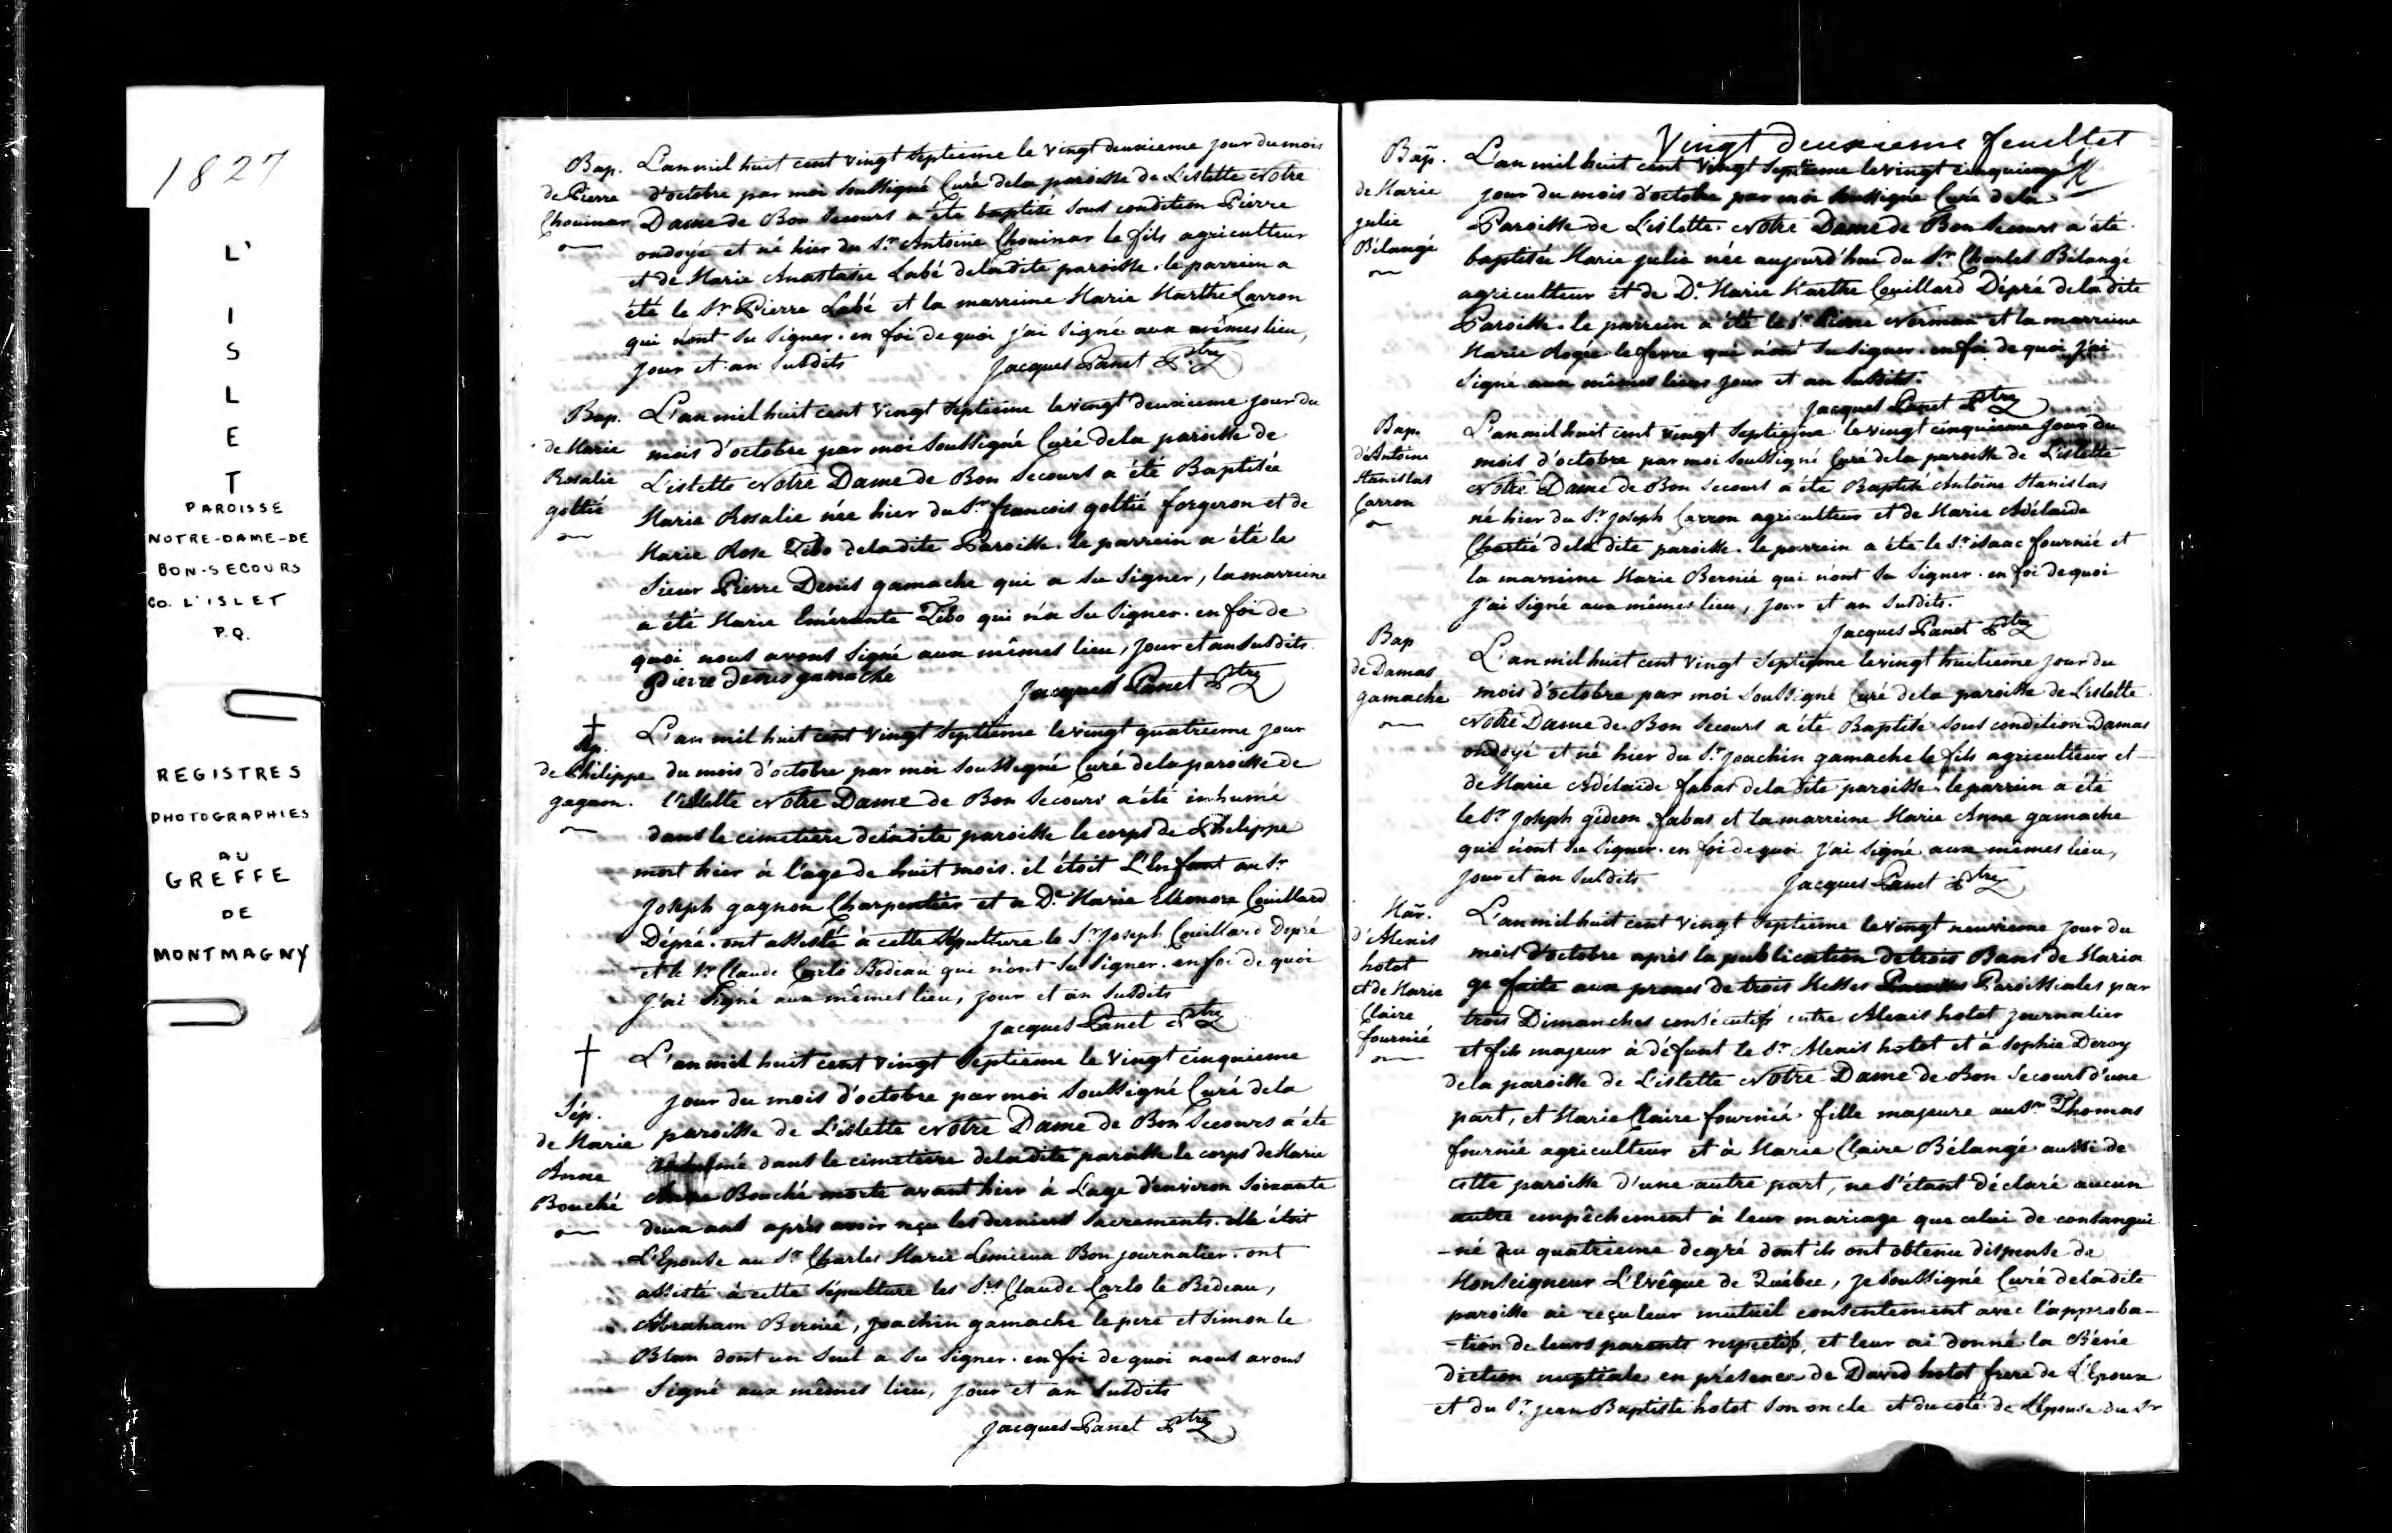 1827
L'
I
S
L
E
T
PAROISSE
NOTRE-DAME-DE
BON-SECOURS
CO. L'ISLET
P.Q.
REGISTRES
PHOTOGRAPHIES
AU
GREFFE
DE
MONTMAGNY
Bap.
de Pierre
Chouinar
L'an mil huit cent vingt septieme le vingt deuxieme jour du mois
d'octobre par moi soussigné Curé de la paroisse de L'islette Notre
Dame de Bon Secours a été baptisé sous condition Pierre
ondoyé et né hier du Sr. Antoine Chouinar le fils agriculteur
et de Marie Anastasie Labé de la dite paroisse. le parrein a
été le Sr Pierre Labé et la marreine Marie Marthe Carron
qui n'ont su signer. en foi de quoi j'ai signé aux mêmes lieu,
jour et an susdits
Jacques Panet Ptre
Bap.
de Marie
Rosalie
goltié
L'an mil huit cent vingt septieme le vingt deuxieme jour du
mois d'octobre par moi soussigné Curé de la paroisse de
L'islette Notre Dame de Bon Secours a été Baptisée
Marie Rosalie née hier du Sr. francois goltié forgeron et de
Marie Rose Tibo de la dite Paroisse. le parrein a été le
Sieur Pierre Denis gamache qui a su signer, la marreine
a été Marie Emérante Tibo qui n'a su signer. en foi de
quoi nous avons signé aux mêmes lieu, jour et an susdits.
Pierre denis gamache
Jacques Panet Ptre
Sép.
de Philippe
gagnon.
L'an mil huit cent vingt septieme le vingt quatrieme jour
du mois d'octobre par moi soussigné Curé de la paroisse de
l'islette Notre Dame de Bon Secours a été inhumé
dans le cimetiere de la dite paroisse le corps de Philippe
mort hier à l'age de huit mois. il étoit L'Enfant au Sr
Joseph gagnon Charpentier et a De. Marie Eléonore Couillard
Dépré. ont assisté à cette sépulture le Sr Joseph Couillard Dépré
et le Sr. Claude Carlo Bedeau qui n'ont su signer. en foi de quoi
j'ai signé aux mêmes lieu, jour et an susdits
Jacques Panet Ptre
Sép.
de Marie
Anne
Bouché
L'an mil huit cent vingt septieme le vingt cinquieme
jour du mois d'octobre par moi soussigné Curé de la
paroisse de L'islette Notre Dame de Bon Secours a été
inhumé dans le cimetiere de la dite paroisse le corps de Marie
Anne Bouché morte avant hier à L'age d'environ soixante
deux ans après avoir reçu les derniers sacrements. elle étoit
L'Epouse au Sr. Charles Marie Lemieux Bon journalier. ont
assisté à cette sépulture les Srs Claude Carlo le Bedeau,
Abraham Bernié, Joachin gamache le pere et Simon le
Blan dont un seul a su signer. en foi de quoi nous avons
signé aux mêmes lieu, jour et an susdits
Jacques Panet Ptre
Vingt deuxieme feuillet
Bap.
de Marie
julie
Bélangé
L'an mil huit cent vingt septieme le vingt cinquieme
jour du mois d'octobre par moi soussigné Curé de la
Paroisse de L'islette Notre Dame de Bon Secours a été
baptisée Marie julie née aujourd'hui du Sr. Charles Bélangé
agriculteur et de De. Marie Marthe Couillard Dépré de la dite
Paroisse. le parrein a été le Sr. Pierre Norman et la marreine
Marie le fevre qui n'ont su signer. en foi de quoi j'ai
signé aux mêmes lieux jour et an susdits.
Jacques Panet Ptre
Bap.
d'Antoine
Stanislas
Carron
L'an mil huit cent vingt septieme le vingt cinquieme jour du
mois d'octobre par moi soussigné Curé de la paroisse de L'islette
Notre Dame de Bon Secours a été Baptisé Antoine Stanislas
né hier du Sr. Joseph Carron agriculteur et de Marie Adélaïde
Chartié de la dite paroisse. le parrein a été le Sr. isaac fournié et
la marreine Marie Bernié qui n'ont su signer. en foi de quoi
j'ai signé aux mêmes lieu, jour et an susdits.
Jacques Panet Ptre
Bap
de Damas
gamache
L'an mil huit cent vingt septieme le vingt huitieme jour du
mois d'octobre par moi soussigné Curé de la paroisse de L'islette
Notre Dame de Bon Secours a été Baptisé sous condition Damas
ondoyé et né hier du Sr. Joachin gamache le fils agriculteur et
de Marie Adélaïde fabas de la dite paroisse. le parrein a été
le Sr. Joseph gédeon fabas et la marreine Marie Anne gamache
qui n'ont su signer. en foi de quoi j'ai signé aux mêmes lieu,
jour et an susdits
Jacques Panet Ptre
Mar.
d'Alexis
hotot
et de Marie
Claire
fournié
L'an mil huit cent vingt septieme le vingt neuvieme jour du
mois d'octobre après la publication de trois Bans de Maria
ge faite aux prones de trois Messes Paroissiales par
trois Dimanches consécutifs entre Alexis hotot journalier
et fils majeur à défunt le Sr. Alexis hotot et à Sophie Deroy
de la paroisse de L'islette Notre Dame de Bon Secours d'une
part, et Marie Claire fournié fille majeure au Sr. Thomas
fournié agriculteur et à Marie Claire Bélangé aussi de
cette paroisse d'une autre part, ne s'étant déclaré aucun
autre empêchement à leur mariage que celui de consangui
-né au quatrieme degré dont ils ont obtenu dispense de
Monseigneur L'Evêque de Québec, je soussigné Curé de la dite
paroisse ai reçu leur mutuel consentement avec l'approba-
-tion de leurs parents respectifs, et leur ai donné la Béné
diction nuptiale en présence de David hotot frere de L'Epoux
et du Sr. Jean Baptiste hotot son oncle et du coté de L'épouse du Sr